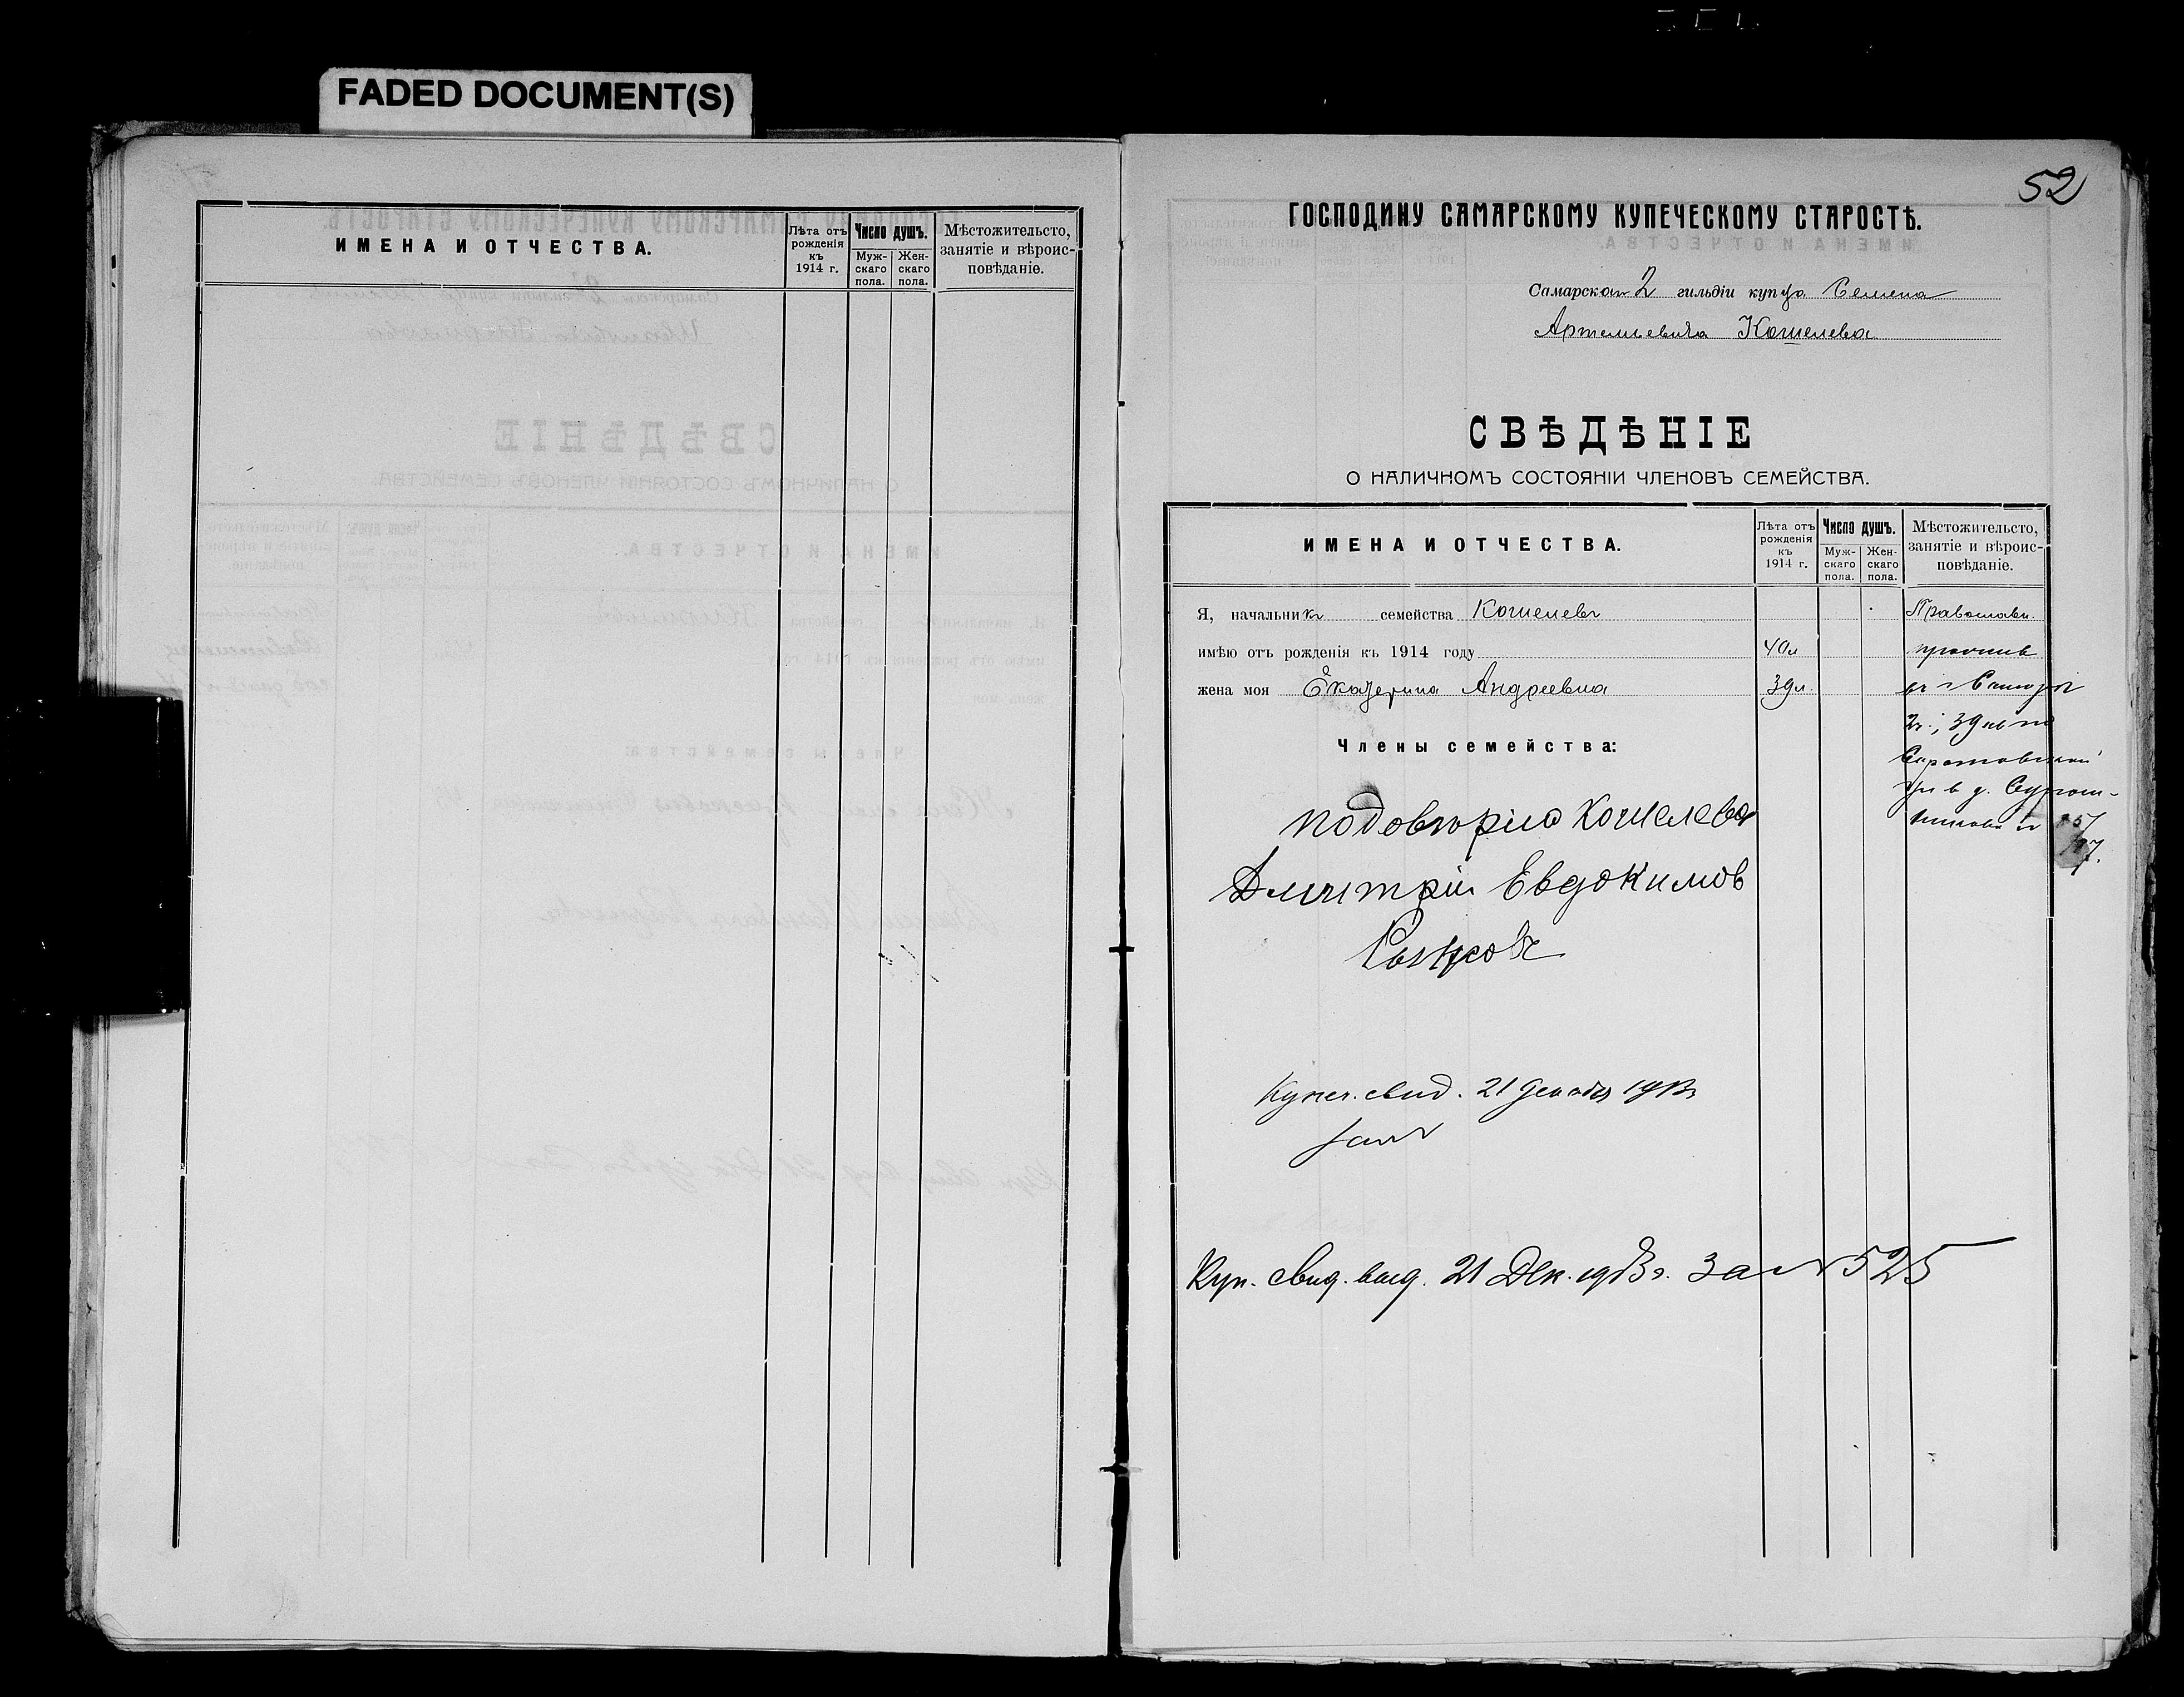 FADED DOCUMENT(S)
ИМЕНА И ОТЧЕСТВА.
Лѣта отъ рожденія къ 1914 г.
Число душъ.
Муж-скаго пола.
Жен-скаго пола.
Мѣстожительсто, занятіе и вѣроис-повѣданіе.
52
ГОСПОДИНУ САМАРСКОМУ КУПЕЧЕСКОМУ СТАРОСТѢ.
Самарскаго 2 гильдіи купца Семена
Артемьевича Кошелева
СВѢДѢНІЕ
О НАЛИЧНОМЪ СОСТОЯНІИ ЧЛЕНОВЪ СЕМЕЙСТВА.
ИМЕНА И ОТЧЕСТВА.
Лѣта отъ рожденія къ 1914 г.
Число душъ.
Муж-скаго пола.
Жен-скаго пола.
Мѣстожительсто, занятіе и вѣроис-повѣданіе.
Я, начальникъ семейства Кошелевъ Православн.
имѣю отъ рожденія къ 1914 году 40 л
жена моя Екатерина Андреевна 39 л. въ г Самарѣ
2 ч.,
Члены семейства:
Саратовской
Кошелева
Дмитрій Евдокимов
Купеч. свид. 21 Декабря 1913
за №
Куп. свид. выд. 21 Дек. 1913 г. за № 525